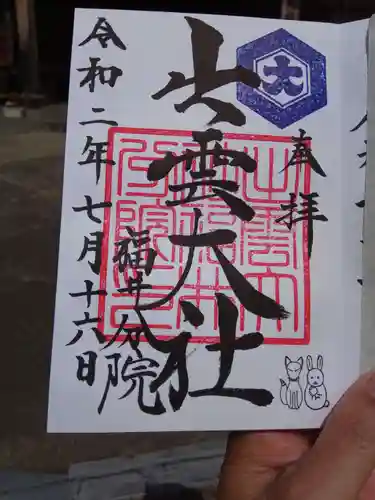 奉拝
大
出雲大社
福井分院
令和二年七月十六日